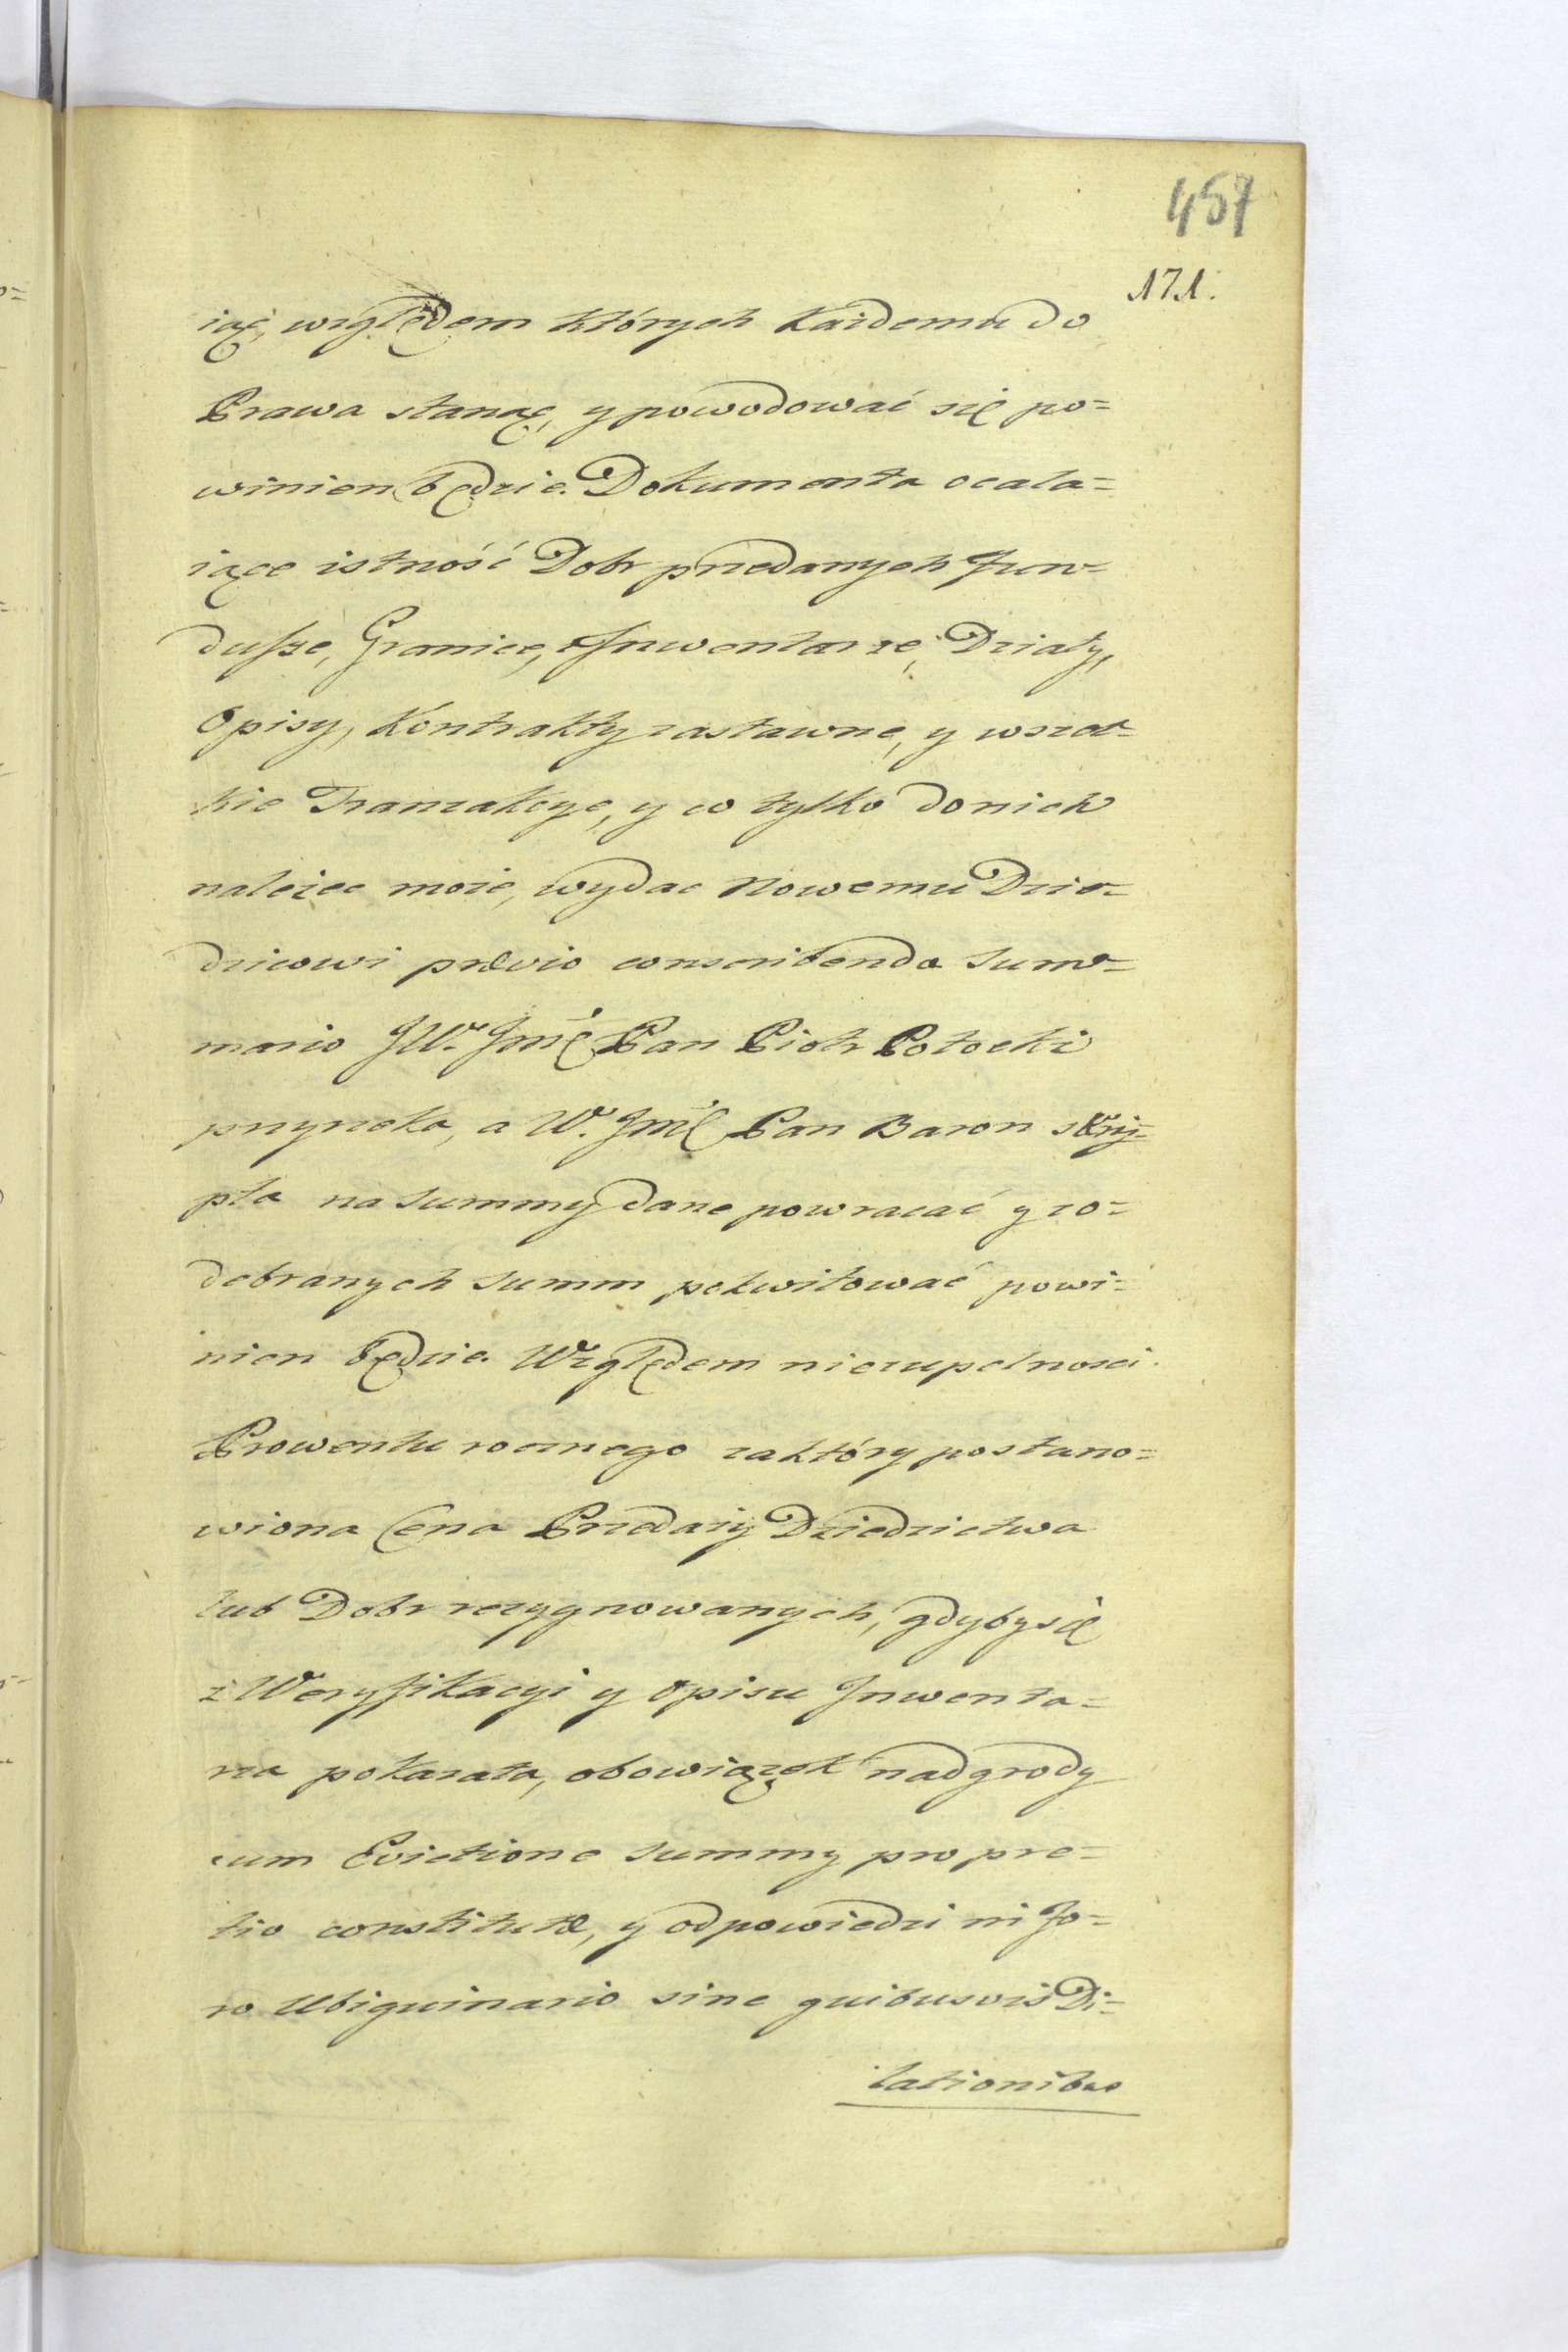 457
171.
iąc, względem których Każdemu do
Prawa stanąć, y powodować się po=
winien będzie. Dokumenta ocala=
iące istność Dobr przedanych Fun=
dusze, Granice, Inwentarze, Działy,
Opisy, Kontrakty zastawne, y wszel=
kie Tranzakcye, y co tylko do nich
należec może, wydac Nowemu Dzie=
dzicowi prævio conscribendo Sum=
mario JW. Jmć Pan Piotr Potocki
przyrzeka, a W. Jmć Pan Baron skry=
pta na Summy dane powracać y zo=
debranych Summ pokwitować powi=
nien będzie. Względem niezupelnosci
Prowentu rocznego za który postano=
wiona Cena Przedaży Dziedzictwa
lub Dobr rezygnowanych, gdyby się
z Weryfikacyi y Opisu Inwenta=
rza pokazała, obowiązek nadgrody
cum Evictione Summy pro pre=
tio constitutæ, y odpowiedzi in Fo=
ro Ubiquinario sine quibusvis Di=
lationibus